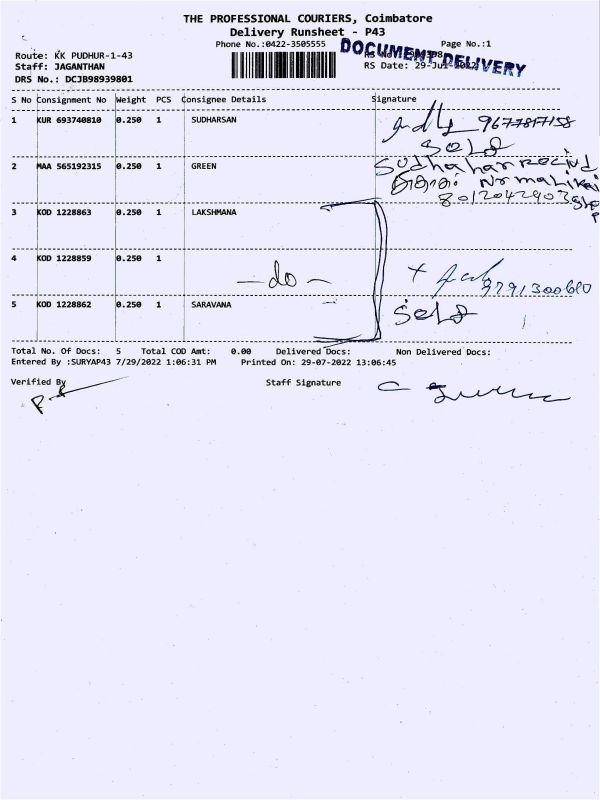 THE PROFESSIONAL COURIERS, Coimbatore
Delivery Runsheet - P43
Phone No.:0422-3505555
Page No.:1
DOCUMENT DELIVERY
Route: KK PUDHUR-1-43
RS Date: 29-Jul-2022
Staff: JAGANTHAN
DRS No.: DCJB98939801
S No Consignment No Weight PCS Consignee Details Signature
1 KUR 693740810 0.250 1 SUDHARSAN
9677817158
Self
2 MAA 565192315 0.250 1 GREEN
8012042903
3 KOD 1228863 0.250 1 LAKSHMANA
4 KOD 1228859 0.250 1
-do-
9791300600
5 KOD 1228862 0.250 1 SARAVANA
Self
Total No. Of Docs: 5 Total COD Amt: 0.00 Delivered Docs: Non Delivered Docs:
Entered By :SURYAP43 7/29/2022 1:06:31 PM Printed On: 29-07-2022 13:06:45
Verified By Staff Signature